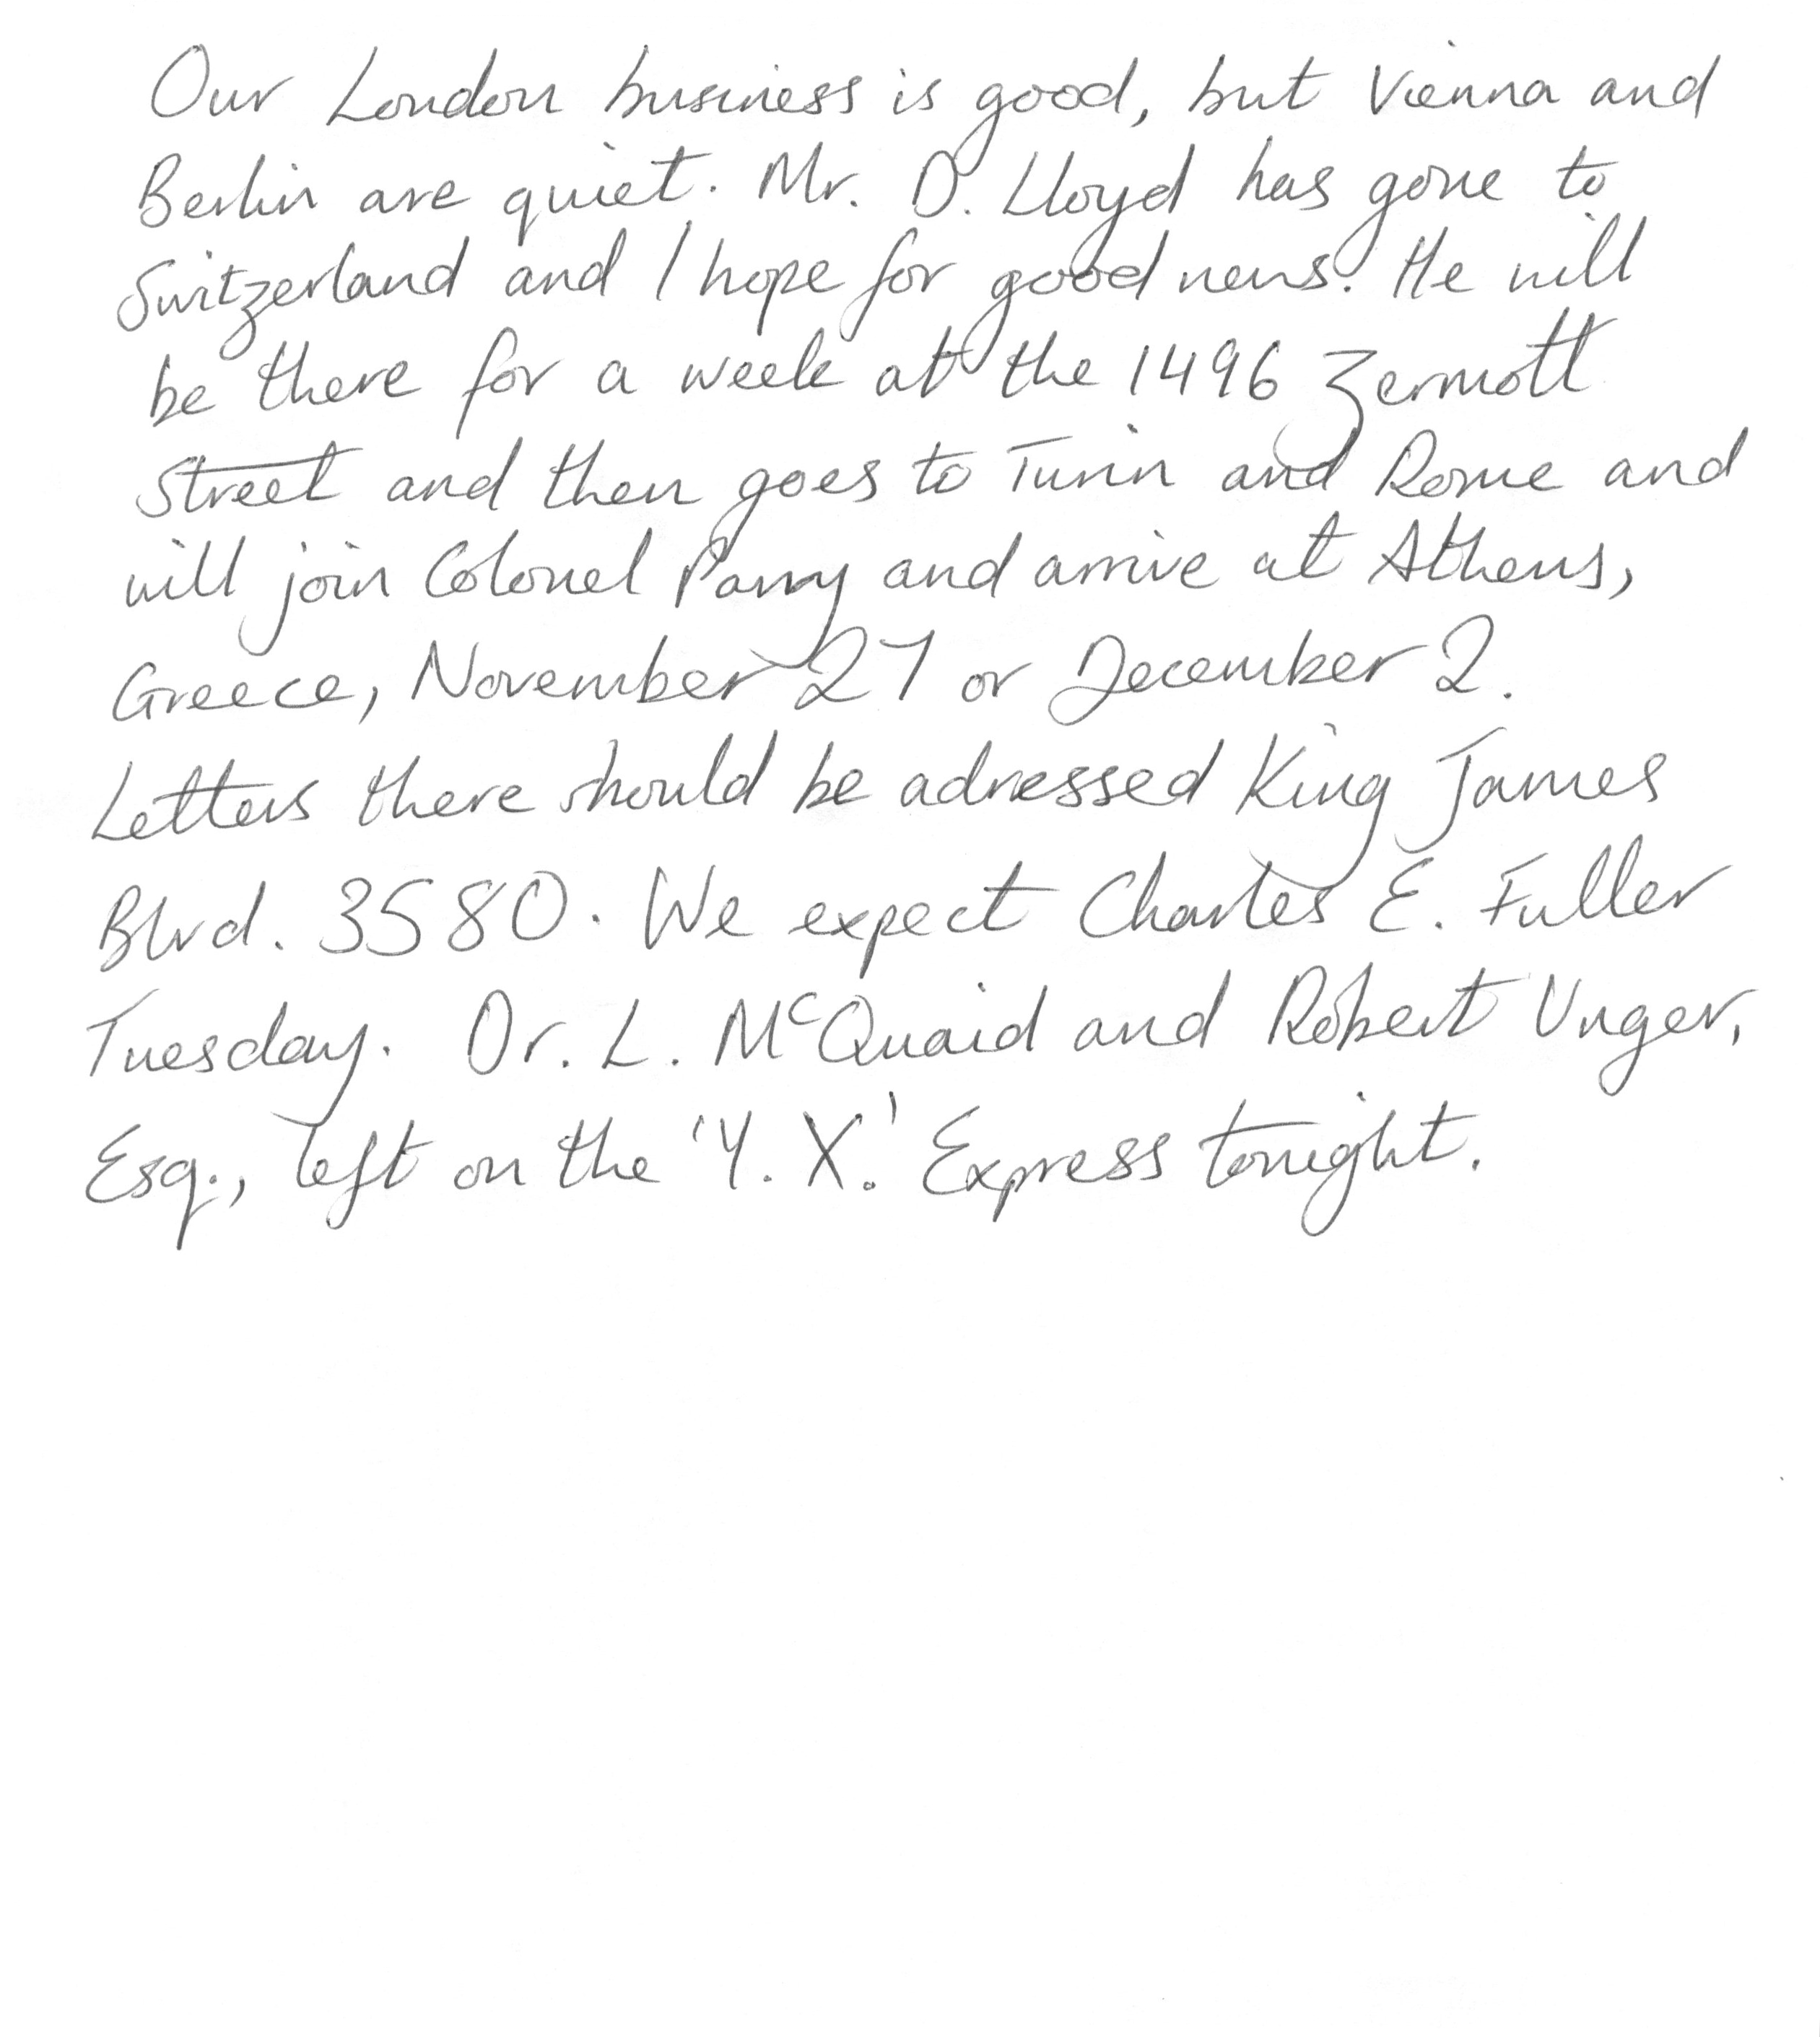 Our London business is good, but Vienna and
Berlin are quiet. Mr. D. Lloyd has gone to
Switzerland and I hope for good news. He will
be there for a week at the 1496 Zermott
Street and then goes to Turin and Rome and
will join Colonel Parry and arrive at Athens,
Greece, November 27 or December 2.
Letters there should be adressed King James
Blvd. 3580. We expect Charles E. Fuller
Tuesday. Dr. L. McQuaid and Robert Unger,
Esq., left on the 'Y. X.' Express tonight.